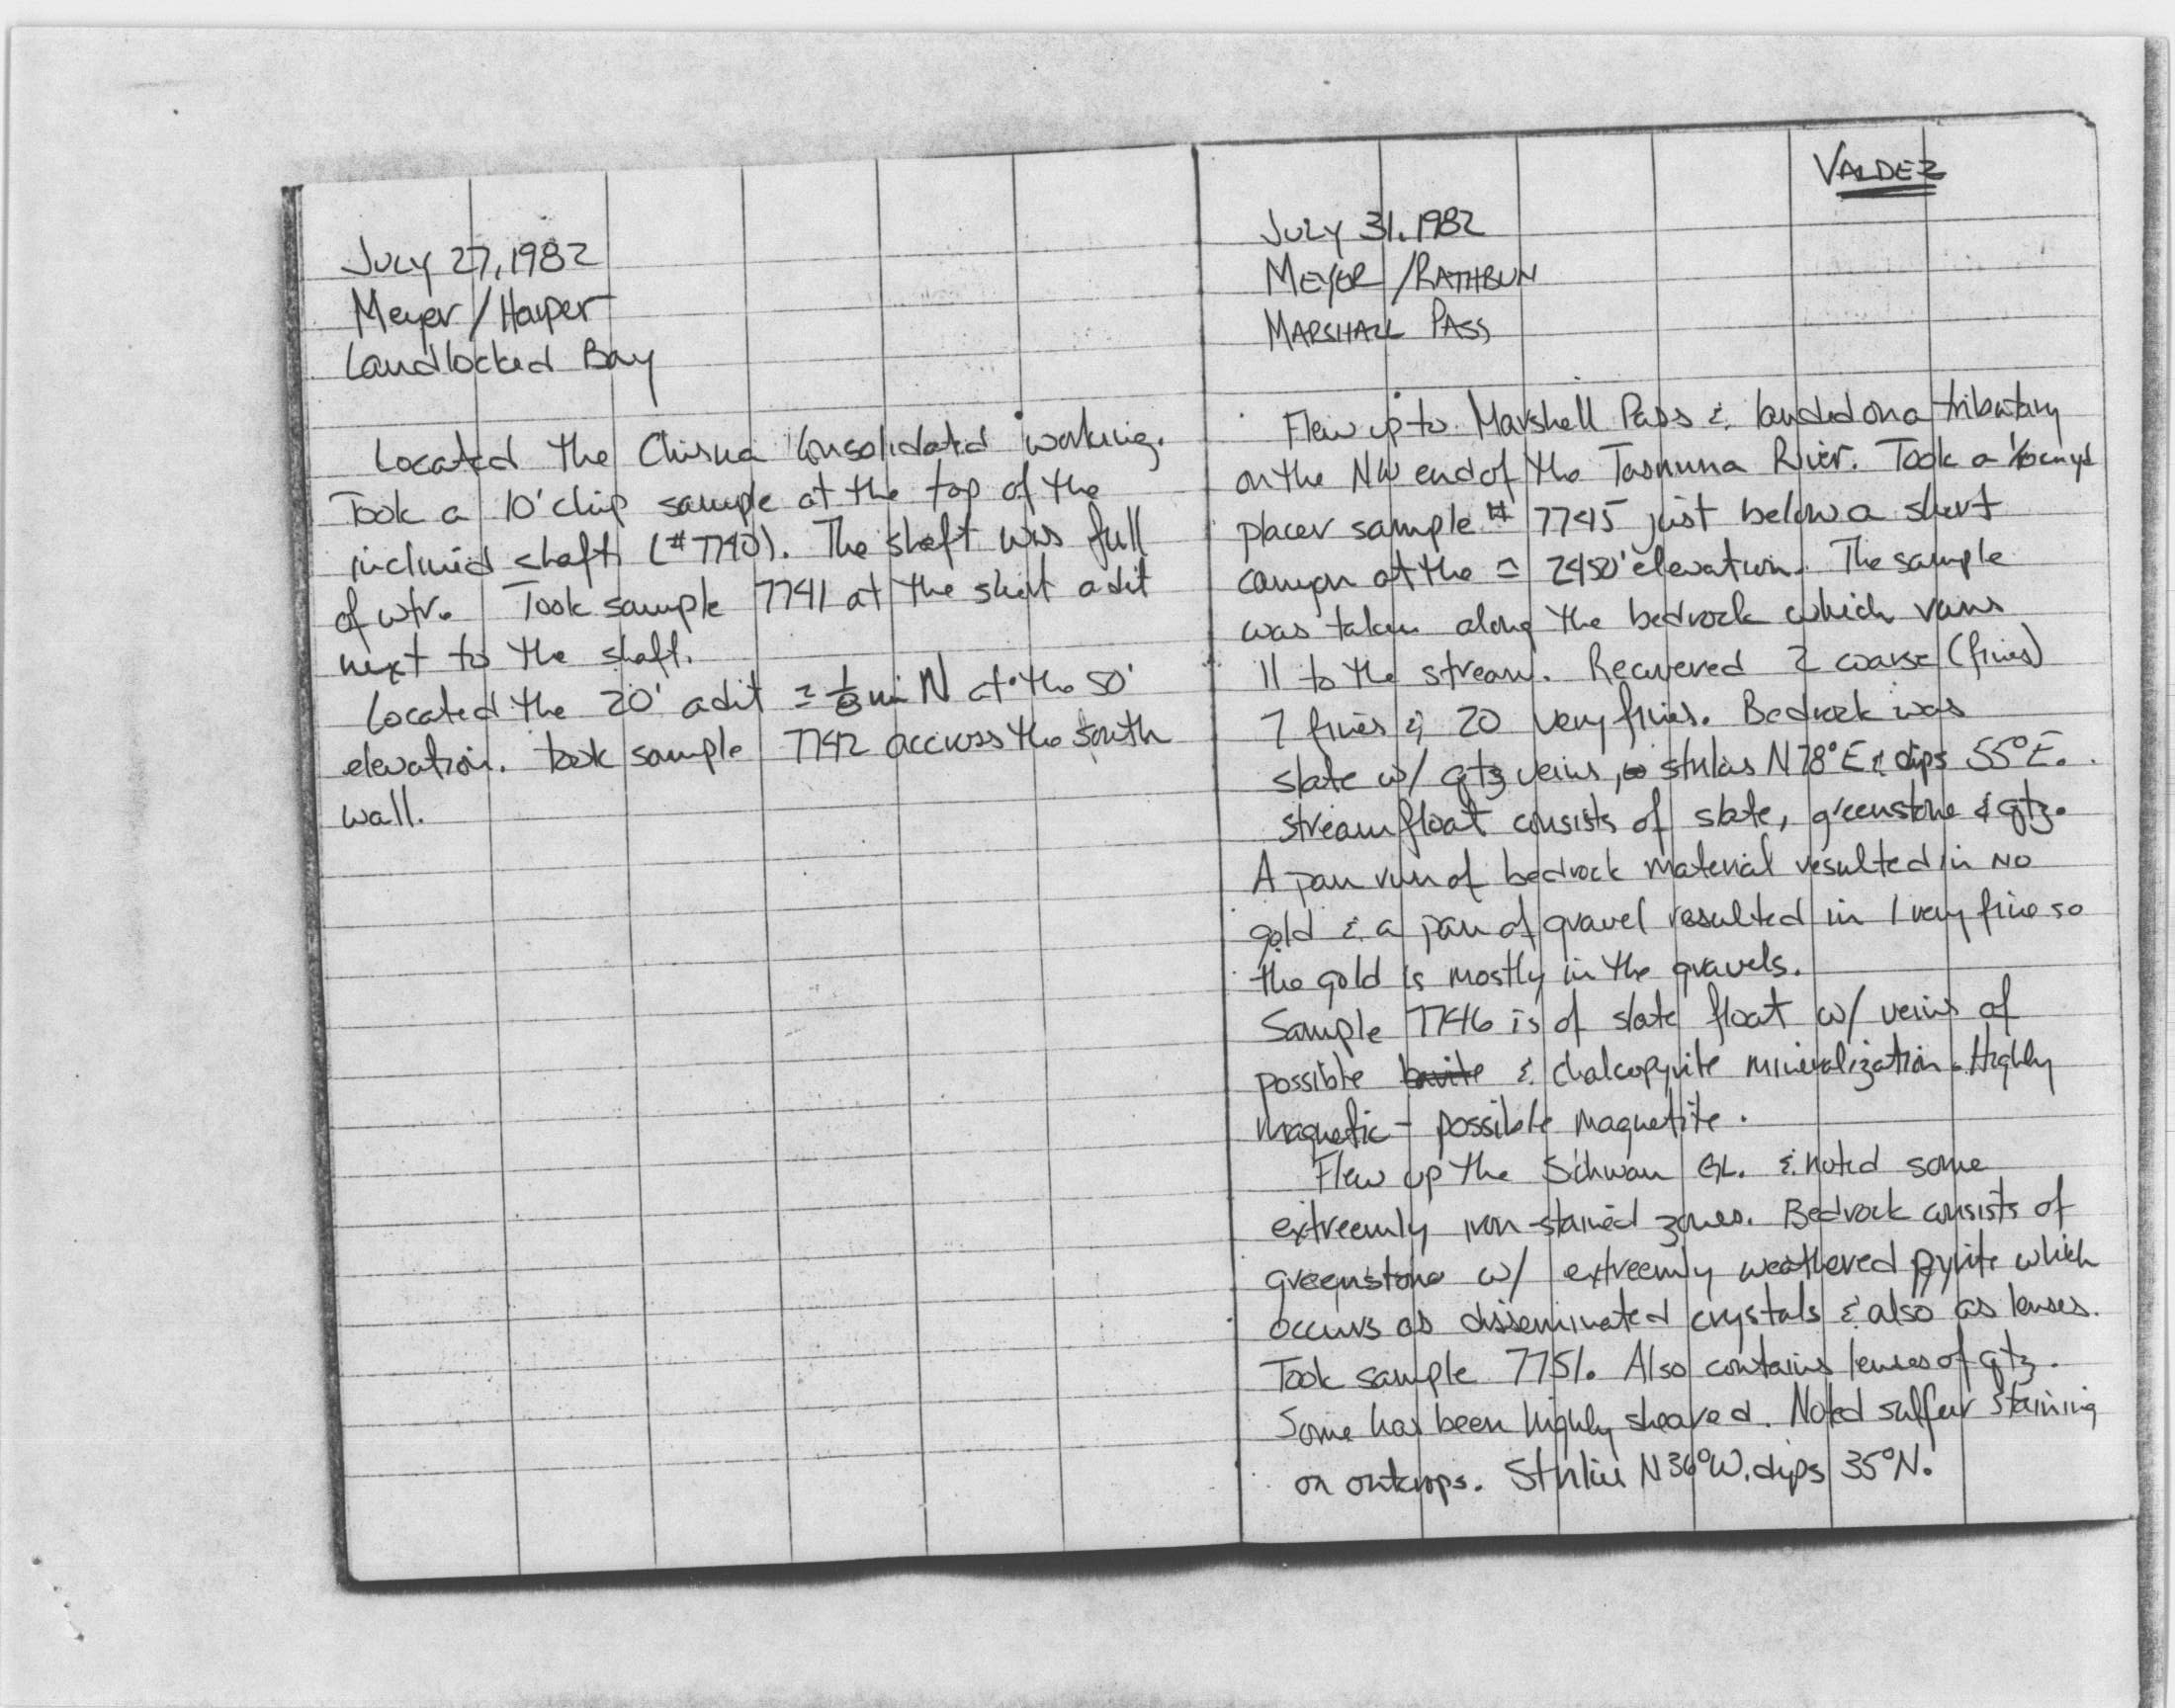 July 27, 1982
Meyer / Harper
Landlocked Bay
Located the Chisna Consolidated working.
Took a 10' chip sample at the top of the
inclined shaft (#7740). The shaft was full
of wtr. Took sample 7741 at the short adit
next to the shaft.
Located the 20' adit ≈ 1/8 mi N at the 50'
elevation. took sample 7742 accross the south
wall.
VALDEZ
JULY 31, 1982
MEYER / RATHBUN
MARSHALL PASS
Flew up to Marshall Pass & landed on a tributary
on the NW end of the Tasnuna River. Took a 1/10 cu yd
placer sample # 7745 just below a short
canyon at the ≈ 2450' elevation. The sample
was taken along the bedrock which runs
|| to the stream. Recovered 2 coarse (fines)
7 fines & 20 very fines. Bedrock was
slate w/ qtz veins, strikes N78°E & dips 55°E.
stream float consists of slate, greenstone & qtz.
A pan run of bedrock material resulted in no
gold & a pan of gravel resulted in 1 very fine so
the gold is mostly in the gravels.
Sample 7746 is of slate float w/ veins of
possible & chalcopyrite mineralization. Highly
magnetic - possible magnetite.
Flew up the Schwan GL. & noted some
extreemly iron-stained zones. Bedrock consists of
greenstone w/ extreemly weathered pyrite which
occurs as disseminated crystals & also as lenses.
Took sample 7751. Also contains lenses of qtz.
Some has been highly sheared. Noted sulfur staining
on outcrops. Strike N36°W, dips 35°N.